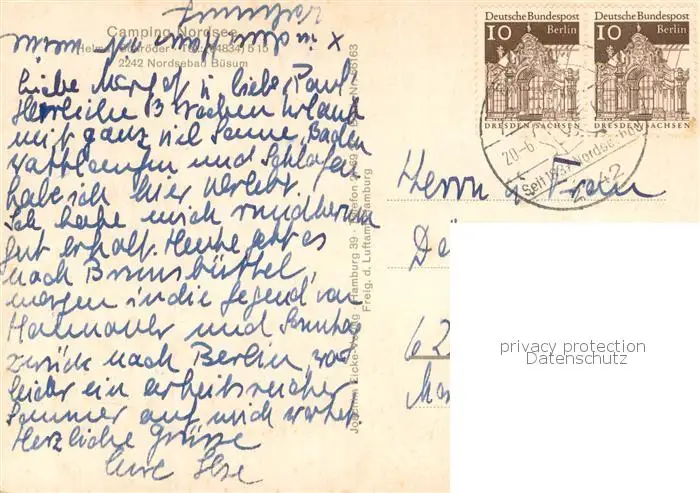 Camping Nordsee
Helmut Schröder · Tel.: (04834) 5 15
2242 Nordseebad Büsum
Liebe Margot u. lieber Paul
Herrliche 3 Wochen Urlaub
mit ganz viel Sonne, Baden
Wattlaufen und Schlafen
habe ich hier verlebt.
Ich habe mich rundherum
gut erholt. Heute geht es
nach Brunsbüttel,
morgen in die Gegend von
Hannover und Sonntag
zurück nach Berlin, wo
leider ein arbeitsreicher
Sommer auf mich wartet.
Herzliche Grüsse
Eure Ilse
Joachim Eicke-Verlag · Hamburg 39
Freig. d. Luftamt Hamburg
Deutsche Bundespost
10 Berlin
DRESDEN SACHSEN
Deutsche Bundespost
10 Berlin
DRESDEN SACHSEN
20.-6
Seit 1837 Nordseeheilbad
2242
Herrn u. Frau
62
privacy protection
Datenschutz